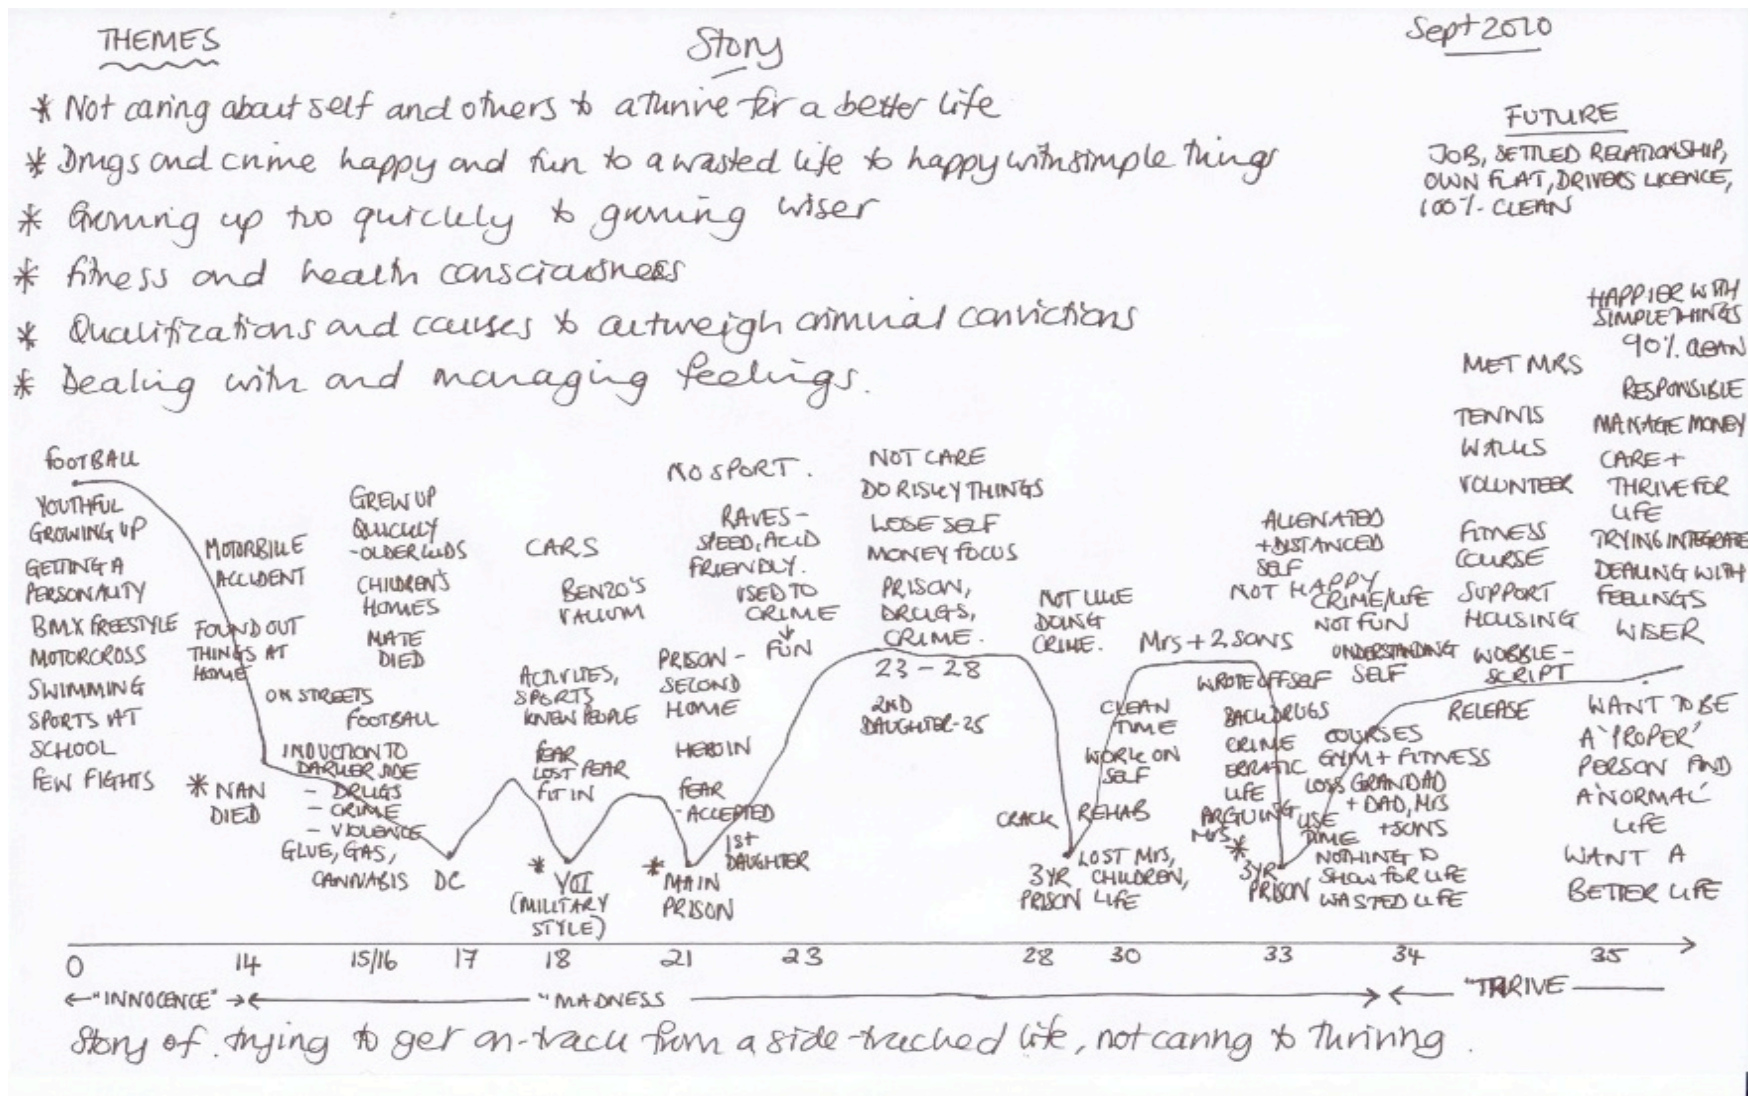 THEMES
Story
Sept 2010
* Not caring about self and others to a thrive for a better life
* Drugs and crime happy and fun to a wasted life to happy with simple things
* Growing up too quickly to growing wiser
* fitness and health consciousness
* Qualifications and courses to outweigh criminal convictions
* Dealing with and managing feelings.
FUTURE
JOB, SETTLED RELATIONSHIP,
OWN FLAT, DRIVERS LICENCE,
100% CLEAN
FOOTBALL
YOUTHFUL
GROWING UP
GETTING A
PERSONALITY
BMX FREESTYLE
MOTORCROSS
SWIMMING
SPORTS AT
SCHOOL
FEW FIGHTS
MOTORBIKE
ACCIDENT
FOUND OUT
THINGS AT
HOME
* NAN
DIED
GREW UP
QUICKLY
-OLDER KIDS
CHILDREN'S
HOMES
MATE
DIED
ON STREETS
FOOTBALL
INDUCTION TO
DARKER SIDE
- DRUGS
- CRIME
- VIOLENCE
GLUE, GAS,
CANNABIS
DC
CARS
BENZO'S
VALIUM
ACTIVITIES,
SPORTS
KNEW PEOPLE
FEAR
LOST FEAR
FIT IN
* YOI
(MILITARY
STYLE)
NO SPORT.
RAVES -
SPEED, ACID
FRIENDLY.
USED TO
CRIME
↓
FUN
PRISON -
SECOND
HOME
HEROIN
FEAR
- ACCEPTED
1st
DAUGHTER
* MAIN
PRISON
NOT CARE
DO RISKY THINGS
LOSE SELF
MONEY FOCUS
PRISON,
DRUGS,
CRIME.
23 - 28
2ND
DAUGHTER-25
NOT LIKE
DOING
CRIME.
CRACK
3YR
PRISON
LOST MRS,
CHILDREN,
LIFE
Mrs + 2 SONS
CLEAN
TIME
WORK ON
SELF
REHAB
ALIENATED
+ DISTANCED
SELF
NOT HAPPY
CRIME/LIFE
NOT FUN
UNDERSTANDING
SELF
WROTE OFF SELF
BACK DRUGS
CRIME
ERRATIC
LIFE
ARGUING
MRS
*
3YR
PRISON
COURSES
GYM + FITNESS
LOSS GRANDAD
+ DAD, MRS
+ SONS
USE
TIME
NOTHING TO
SHOW FOR LIFE
WASTED LIFE
MET MRS
TENNIS
WALKS
VOLUNTEER
FITNESS
COURSE
SUPPORT
HOUSING
WOBBLE -
SCRIPT
RELEASE
HAPPIER WITH
SIMPLE THINGS
90% CLEAN
RESPONSIBLE
MANAGE MONEY
CARE +
THRIVE FOR
LIFE
TRYING INTEGRATE
DEALING WITH
FEELINGS
WISER
WANT TO BE
A 'PROPER'
PERSON AND
A 'NORMAL'
LIFE
WANT A
BETTER LIFE
0 14 15/16 17 18 21 23 28 30 33 34 35
← "INNOCENCE" →← "MADNESS → ← "THRIVE
Story of trying to get on-track from a side-tracked life, not caring to thriving.